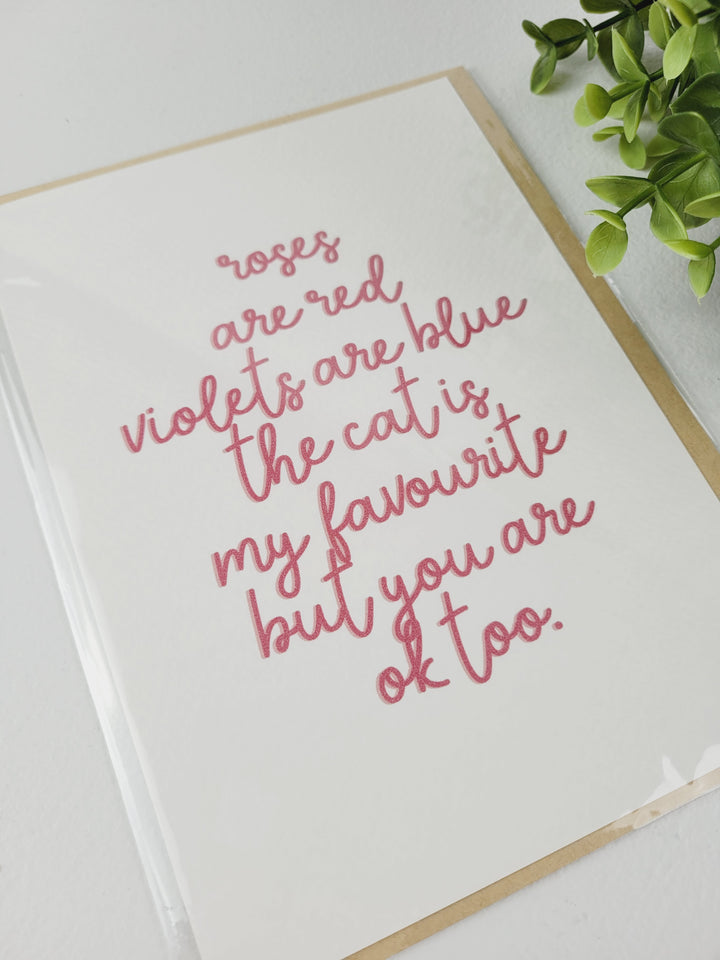 roses
are red
violets are blue
the cat is
my favourite
but you are
ok too.